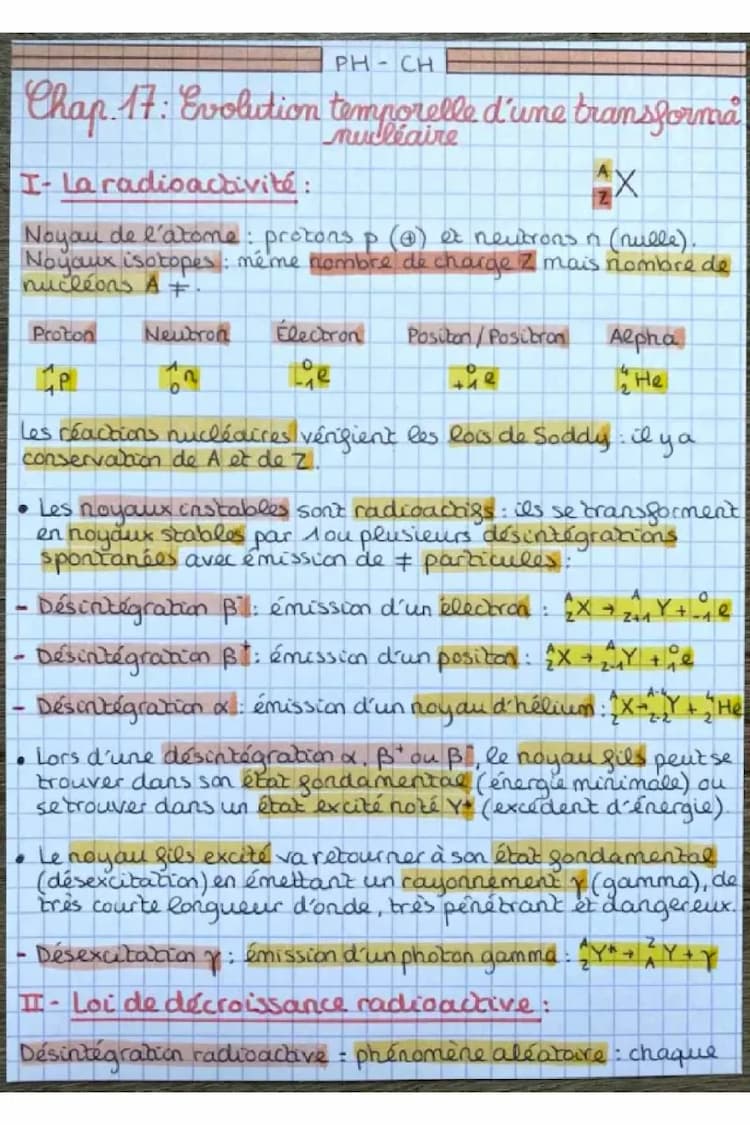 PH - CH
Chap. 17 : Evolution temporelle d'une transformaº
nucléaire
I - La radioactivité : ᴬ_Z X
Noyau de l'atome : protons p (⊕) et neutrons n (nulle).
Noyaux isotopes : même nombre de charge Z mais nombre de
nucléons A ≠.
Proton Neutron Électron Positon / Positron Alpha
¹₁p ¹₀n ⁰₋₁e ⁰₊₁e ⁴₂He
Les réactions nucléaires vérifient les lois de Soddy : il y a
conservation de A et de Z.
• Les noyaux instables sont radioactifs : ils se transforment
en noyaux stables par 1 ou plusieurs désintégrations
spontanées avec émission de ≠ particules :
- Désintégration β⁻ : émission d'un électron : ᴬ_Z X → ᴬ_Z+1 Y + ⁰₋₁e
- Désintégration β⁺ : émission d'un positon : ᴬ_Z X → ᴬ_Z-1 Y + ⁰₁e
- Désintégration α : émission d'un noyau d'hélium : ᴬ_Z X → ᴬ⁻⁴_Z-2 Y + ⁴₂He
• Lors d'une désintégration α, β⁺ ou β⁻, le noyau fils peut se
trouver dans son état fondamental (énergie minimale) ou
se trouver dans un état excité noté Y* (excédent d'énergie).
• Le noyau fils excité va retourner à son état fondamental
(désexcitation) en émettant un rayonnement γ (gamma), de
très courte longueur d'onde, très pénétrant et dangereux.
- Désexcitation γ : émission d'un photon gamma : ᴬ_Z Y* → ᶻ_A Y + γ
II - Loi de décroissance radioactive :
Désintégration radioactive = phénomène aléatoire : chaque